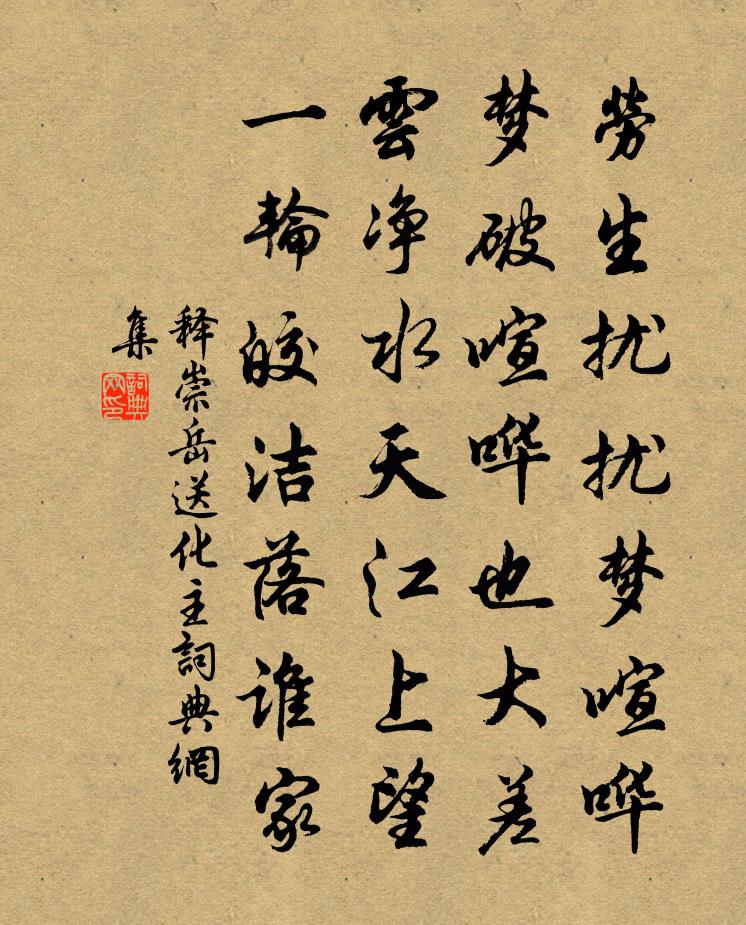 勞生扰扰梦喧哗
梦破喧哗也大差
雲净水天江上望
一輪皎洁落谁家
释崇岳送化主詞典網
集
詞典網印